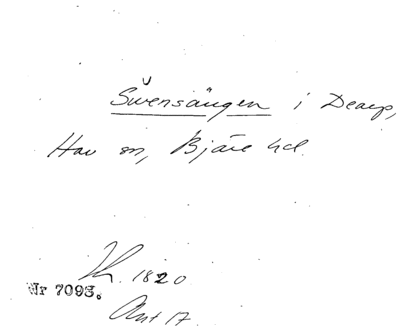 Swensängen i Dearp,
Hov sn, Bjäre hd.
1820
Nr 7093.
Akt 17